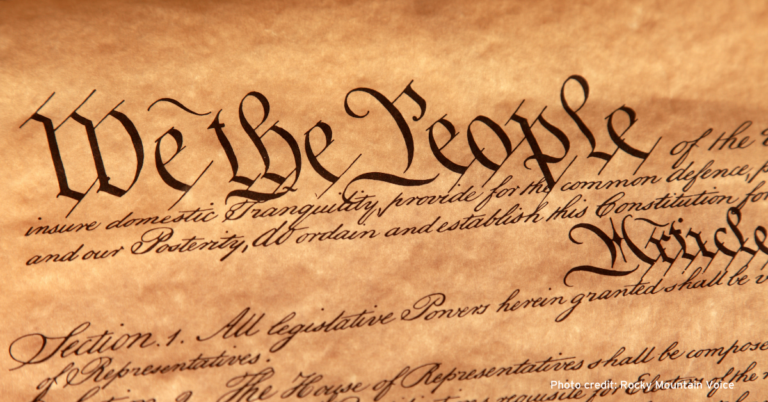 We the People of the
insure domestic Tranquility, provide for the common defence,
and our Posterity, do ordain and establish this Constitution for
Article
Section. 1. All legislative Powers herein granted shall be
of Representatives.
The House of Representatives shall be
requisite for
Photo credit: Rocky Mountain Voice